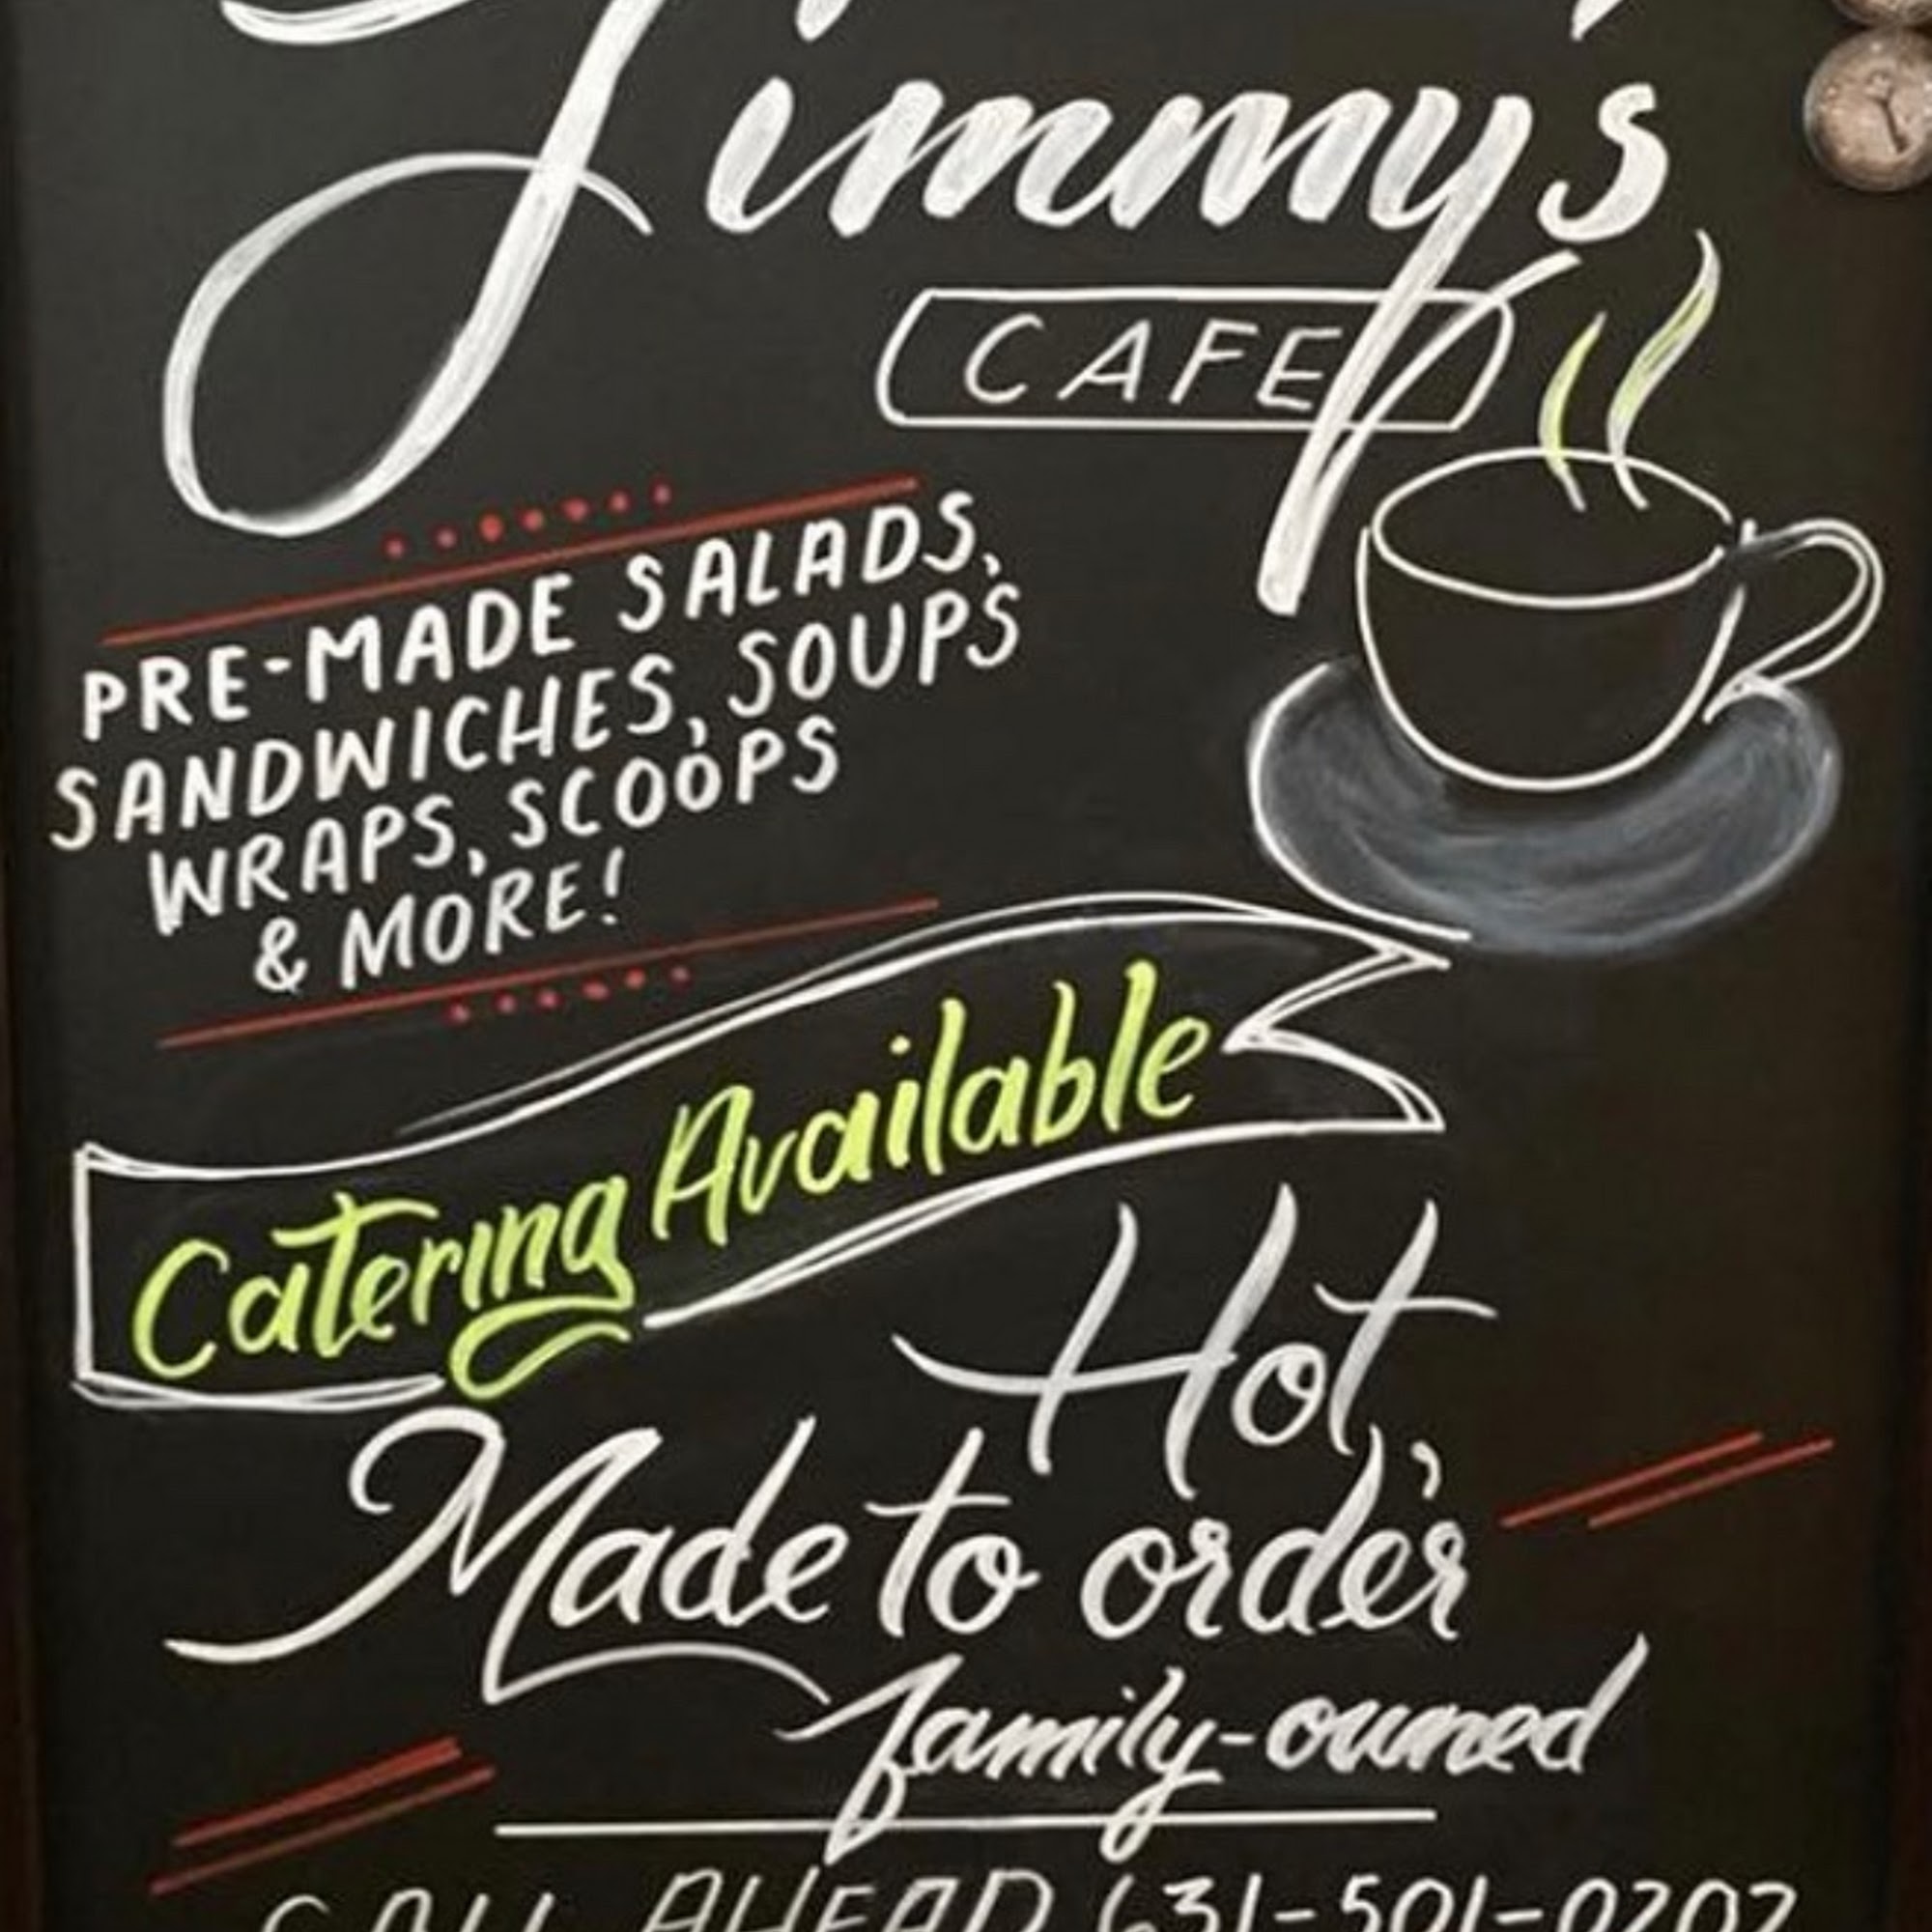 Jimmy's
CAFE
PRE-MADE SALADS,
SANDWICHES, SOUPS
WRAPS, SCOOPS
& MORE!
Catering Available
Hot,
Made to order
family-owned
CALL AHEAD 631-501-0202